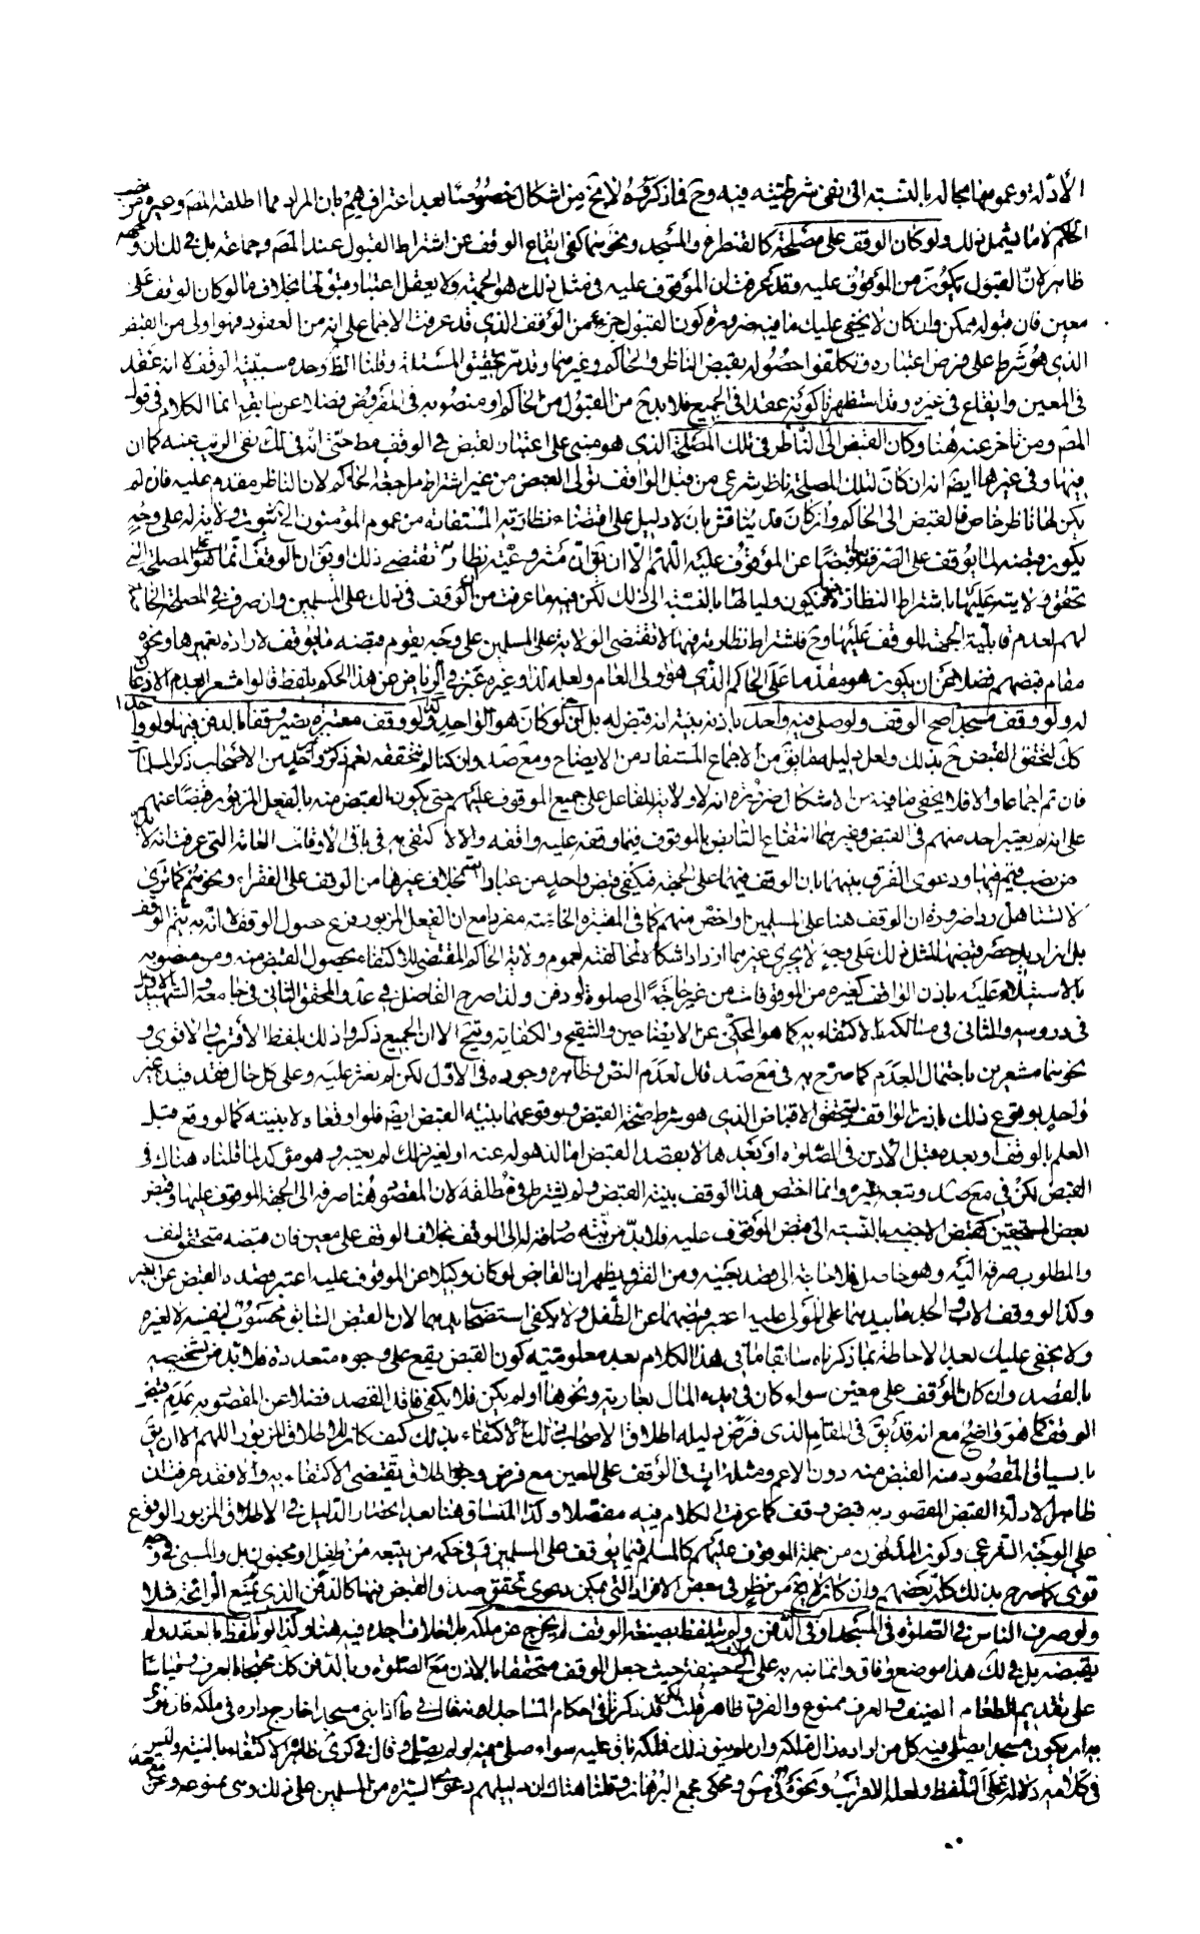 الأدلة وعمومها مجاله بالنسبة الى نفى شرطيته فيه وح فما ذكروه لا يخ من اشكال خصوصا بعد اعترافهم بان المراد مما اطلقه المص وغيره
الحكم لا ما يشمل ذلك ولو كان الوقف على مصلحة كالقنطرة والمسجد ونحوهما كفى ايقاع الوقف عن اشتراط القبول عند المص وجماعة بل في لك ان
ظاهر لان القبول يكون من الموقوف عليه وقد عرفت ان الموقوف عليه في مثل ذلك هو الجهة ولا يعقل اعتبار قبولها بخلاف ما لو كان الوقف على
معين فان قبوله ممكن وان كان لا يخفى عليك ما فيه ضرورة كون القبول جزء من الوقف الذى قد عرفت الاجماع على انه من العقود فهو اولى من القبض
الذى هو شرط على فرض اعتباره وتكلفوا حصوله بقبض الناظر والحاكم وغيرهما وقد مر تحقيق المسئلة وقلنا الظ وحده سببية الوقف لا انه عقد
فى المعين وايقاع في غيره وقد استظهرنا كونه عقدا في الجميع فلا بد ح من القبول من الحاكم او منصوبه في المفروض فضلا عن سابقه انما الكلام في قول
المص ومن تاخر عنه هنا وكان القبض الى الناظر في تلك المصلحة الذى هو مبنى على اعتبار القبض في الوقف مط حتى انه في لك نفى الريب عنه كما ان
فيها وفي غيرها ايضا انه ان كان لتلك المصلحة ناظر شرعى من قبل الواقف تولى القبض من غير اشتراط مراجعة الحاكم لان الناظر مقدم عليه فان لم
يكن لها ناظر خاص فالقبض الى الحاكم وان كان قد يناقش بان لا دليل على اقتضاء نظارته المستفادة من عموم المؤمنون الخ ثبوت ولاية له على وجه
يكون قبضه لما يوقف على المصرف قبضا عن الموقوف عليه اللهم الا ان يقال ان مشروعية نظارته تقتضى ذلك او يق ان الوقف انما هو المصلحة التى
تحقق ولايته عليها باشتراط النظارة فيكون وليا لها بالنسبة الى ذلك لكن فيه ما عرفت من ان الوقف في ذلك على المسلمين وان صرف في المصلحة الخاصة
لهم لعدم قابلية الجهة للوقف عليها وح فاشتراط نظارته فيها لا تقتضى الولاية على المسلمين على وجه يقوم قبضه ما يوقف لارادة تعميرها ونحوه
مقام قبضهم فضلا عن ان يكون هو مقدما على الحاكم الذى هو ولى العام ولعله لذا وغيره عبر في الرياض عن هذا الحكم بلفظ قالوا مشعرا بعدم الاذعان
له ولو وقف مسجدا صح الوقف ولو صلى فيه واحد باذنه بنية انه قبض له بل لو كان هو الواحد وكذا لو وقف مقبرة يصير وقفا بالدفن فيها ولو واحدا
كك لتحقق القبض ح بذلك ولعل دليله مضافا الى ما يق من الاجماع المستفاد من الايضاح ومع صد وان كنا لم نتحققه نعم ذكره واحد من الاصحاب ذكر المسلمات
فان تم اجماعا والا فلا يخفى ما فيه من الاشكال ضرورة انه لا ولاية للفاعل على جميع الموقوف عليهم حتى يكون القبض منه بالفعل المزبور قبضا عنهم
على انه لم يعتبر احد منهم في القبض وغيرهما انتفاع القابض بالموقوف فيما وقفه عليه واقفه والا لاكتفى به في باقى الاوقاف العامة التى عرفت انه لا بد
من نصب قيم فيها ودعوى الفرق بينهما بان الوقف فيهما على الجهة فيكفى قبض واحد من عباد الله بخلاف غيرها من الوقف على الفقراء ونحوهم كما ترى
لا تستاهل ردا ضرورة ان الوقف هنا على المسلمين او اخص منهم كما في المقبرة الخاصة مفردا مع ان الفعل المزبور فرع حصول الوقف لا انه به يتم الوقف
بل ان اريد حصر قبضهما لمثل ذلك على وجه لا يجزى غيرهما ازداد اشكالا لمخالفته لعموم ولاية الحاكم المقتضى للاكتفاء بحصول القبض منه ومن منصوبه
بالاستيلاء عليه باذن الواقف كغيره من الموقوفات من غير حاجة الى صلوة او دفن ولذا صرح الفاضل في عد والمحقق الثانى في جامعه والشهيد الاول
في دروسه والثانى في مسالكه بالاكتفاء به كما هو المحكى عن الايضاحين والتنقيح والكفاية وتبيح الا ان الجميع ذكروا ذلك بلفظ الاقرب والاقوى و
نحوهما مشعرين باحتمال العدم كما صرح به في مع صد قال لعدم النص وظاهره وجوده في الاول لكن لم نعثر عليه وعلى كل حال فقد قيد غير
واحد بوقوع ذلك باذن الواقف ليتحقق الاقباض الذى هو شرط صحة القبض وبوقوعهما بنية القبض ايض فلو اوقعا لا بنيته كما لو وقع قبل
العلم بالوقف او بعده قبل الاذن في الصلوة او بعدها لا بقصد القبض اما لذهوله عنه او لغير ذلك لم يعتبر وهو مؤكد لما قلناه هناك في
القبض لكن في مع صد وتبعه غيره وانما اختص هذا الوقف بنية القبض ولم يشترط في مطلقه لان المقصود هنا صرفه الى الجهة الموقوف عليها وقبض
بعض المستحقين كقبض الاجنبى بالنسبة الى قبض الموقوف عليه فلا بد من نية صارفة له الى الوقف بخلاف الوقف على معين فان قبضه متحقق كيف
والمطلوب صرفه اليه وهو حاصل فلا حاجة الى قصد يعينه ومن الفرق يظهر ان القابض لو كان وكيلا عن الموقوف عليه اعتبر قصده القبض عن الغير
وكذا لو وقف الاب والجد ما بيدهما على المولى عليه اعتبر قبضهما عن الطفل ولا يكفى استصحاب يدهما لان القبض السابق محسوب لنفسه لا لغيره
ولا يخفى عليك بعد الاحاطة بما ذكرناه سابقا ما في هذا الكلام بعد معلومية كون القبض يقع على وجوه متعددة فلا بد من تشخيصه
بالقصد وان كان الموقف على معين سواء كان في يده المال بعارية ونحوها او لم يكن فلا يكفى فاقد القصد فضلا عن المقصود به عدم قبض
الوقف كما هو واضح مع انه قد يق في المقام الذى فرض دليله اطلاق الاصحاب في ذلك الاكتفاء بذلك كيف كان للاطلاق المزبور اللهم الا ان يق
بانسياق المقصود منه القبض منه دون الاعم ومثله ات في الوقف على المعين مع فرض وجود اطلاق يقتضى الاكتفاء به والا فقد عرفت ان
ظاهر الادلة القبض المقصود به قبض وقف كما عرفت الكلام فيه مفصلا وكذا المنساق هنا بعد انحصار الدليل في الاطلاق المزبور الوقوع
على الوجه الشرعى وكون المدفون من جملة الموقوف عليهم كالمسلم فيما يوقف على المسلمين وفي حكمه من يتبعه من طفل او مجنون بل والمسبى في وجه
قوى كما صرح بذلك كله بعضهم وان كان لا يخ من نظر في بعض الافراد التى يمكن دعوى تحقق صدق القبض فيها كالدفن الذى يمنع الرائحة مثلا
ولو صرف الناس في الصلوة في المسجد او في الدفن ولم يتلفظ بصيغة الوقف لم يخرج عن ملكه بلا خلاف اجده فيه هنا وكذا لو تلفظ بالعقد ولم
يقبضه بل في لك هذا موضع وفاق وانما نبه به على خلاف ابى حنيفة حيث جعل الوقف متحققا بالاذن مع الصلوة وبالدفن كك محتجا بالعرف وقياسا
على تقديم الطعام الضيف والعرف ممنوع والفرق ظاهر قلت لكن قد ذكرنا في احكام المساجد انه قال في ط اذا بنى مسجدا خارج داره في ملكه فان نوى
به ان يكون مسجدا يصلى فيه كل من اراده زال ملكه وان لم ينو ذلك فملكه باق عليه سواء صلى فيه او لم يصل وقال في كرى ظاهره الاكتفاء بالنية وليس
في كلامه دلالة على التلفظ ولعله الاقرب ونحوه في مش ومحكى مجمع البرهان وقلنا هناك ان دليلهم دعوى السيرة من المسلمين على ذلك وهى ممنوعة